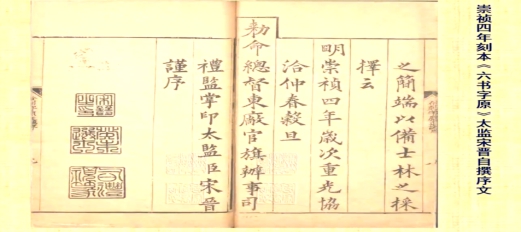 崇祯四年刻本《六书字原》太监宋晋自撰序文
之簡端以備士林之採
擇云
明崇禎四年歲次重光協
洽仲春穀旦
勅命總督東厰官旗辦事司
禮監掌印太監臣宋晉
謹序